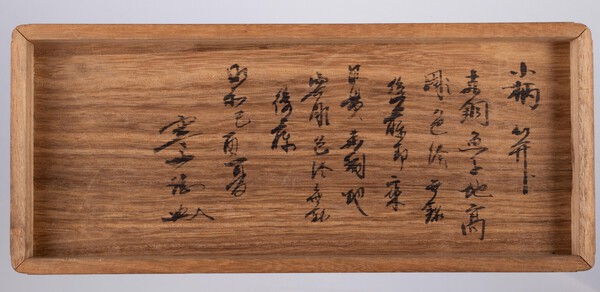 小柄 笄
赤銅魚子地高
彫色絵 無銘
後藤即乗
目貫 赤銅地
容彫色絵 無銘
後藤
昭和己酉
寒山誌